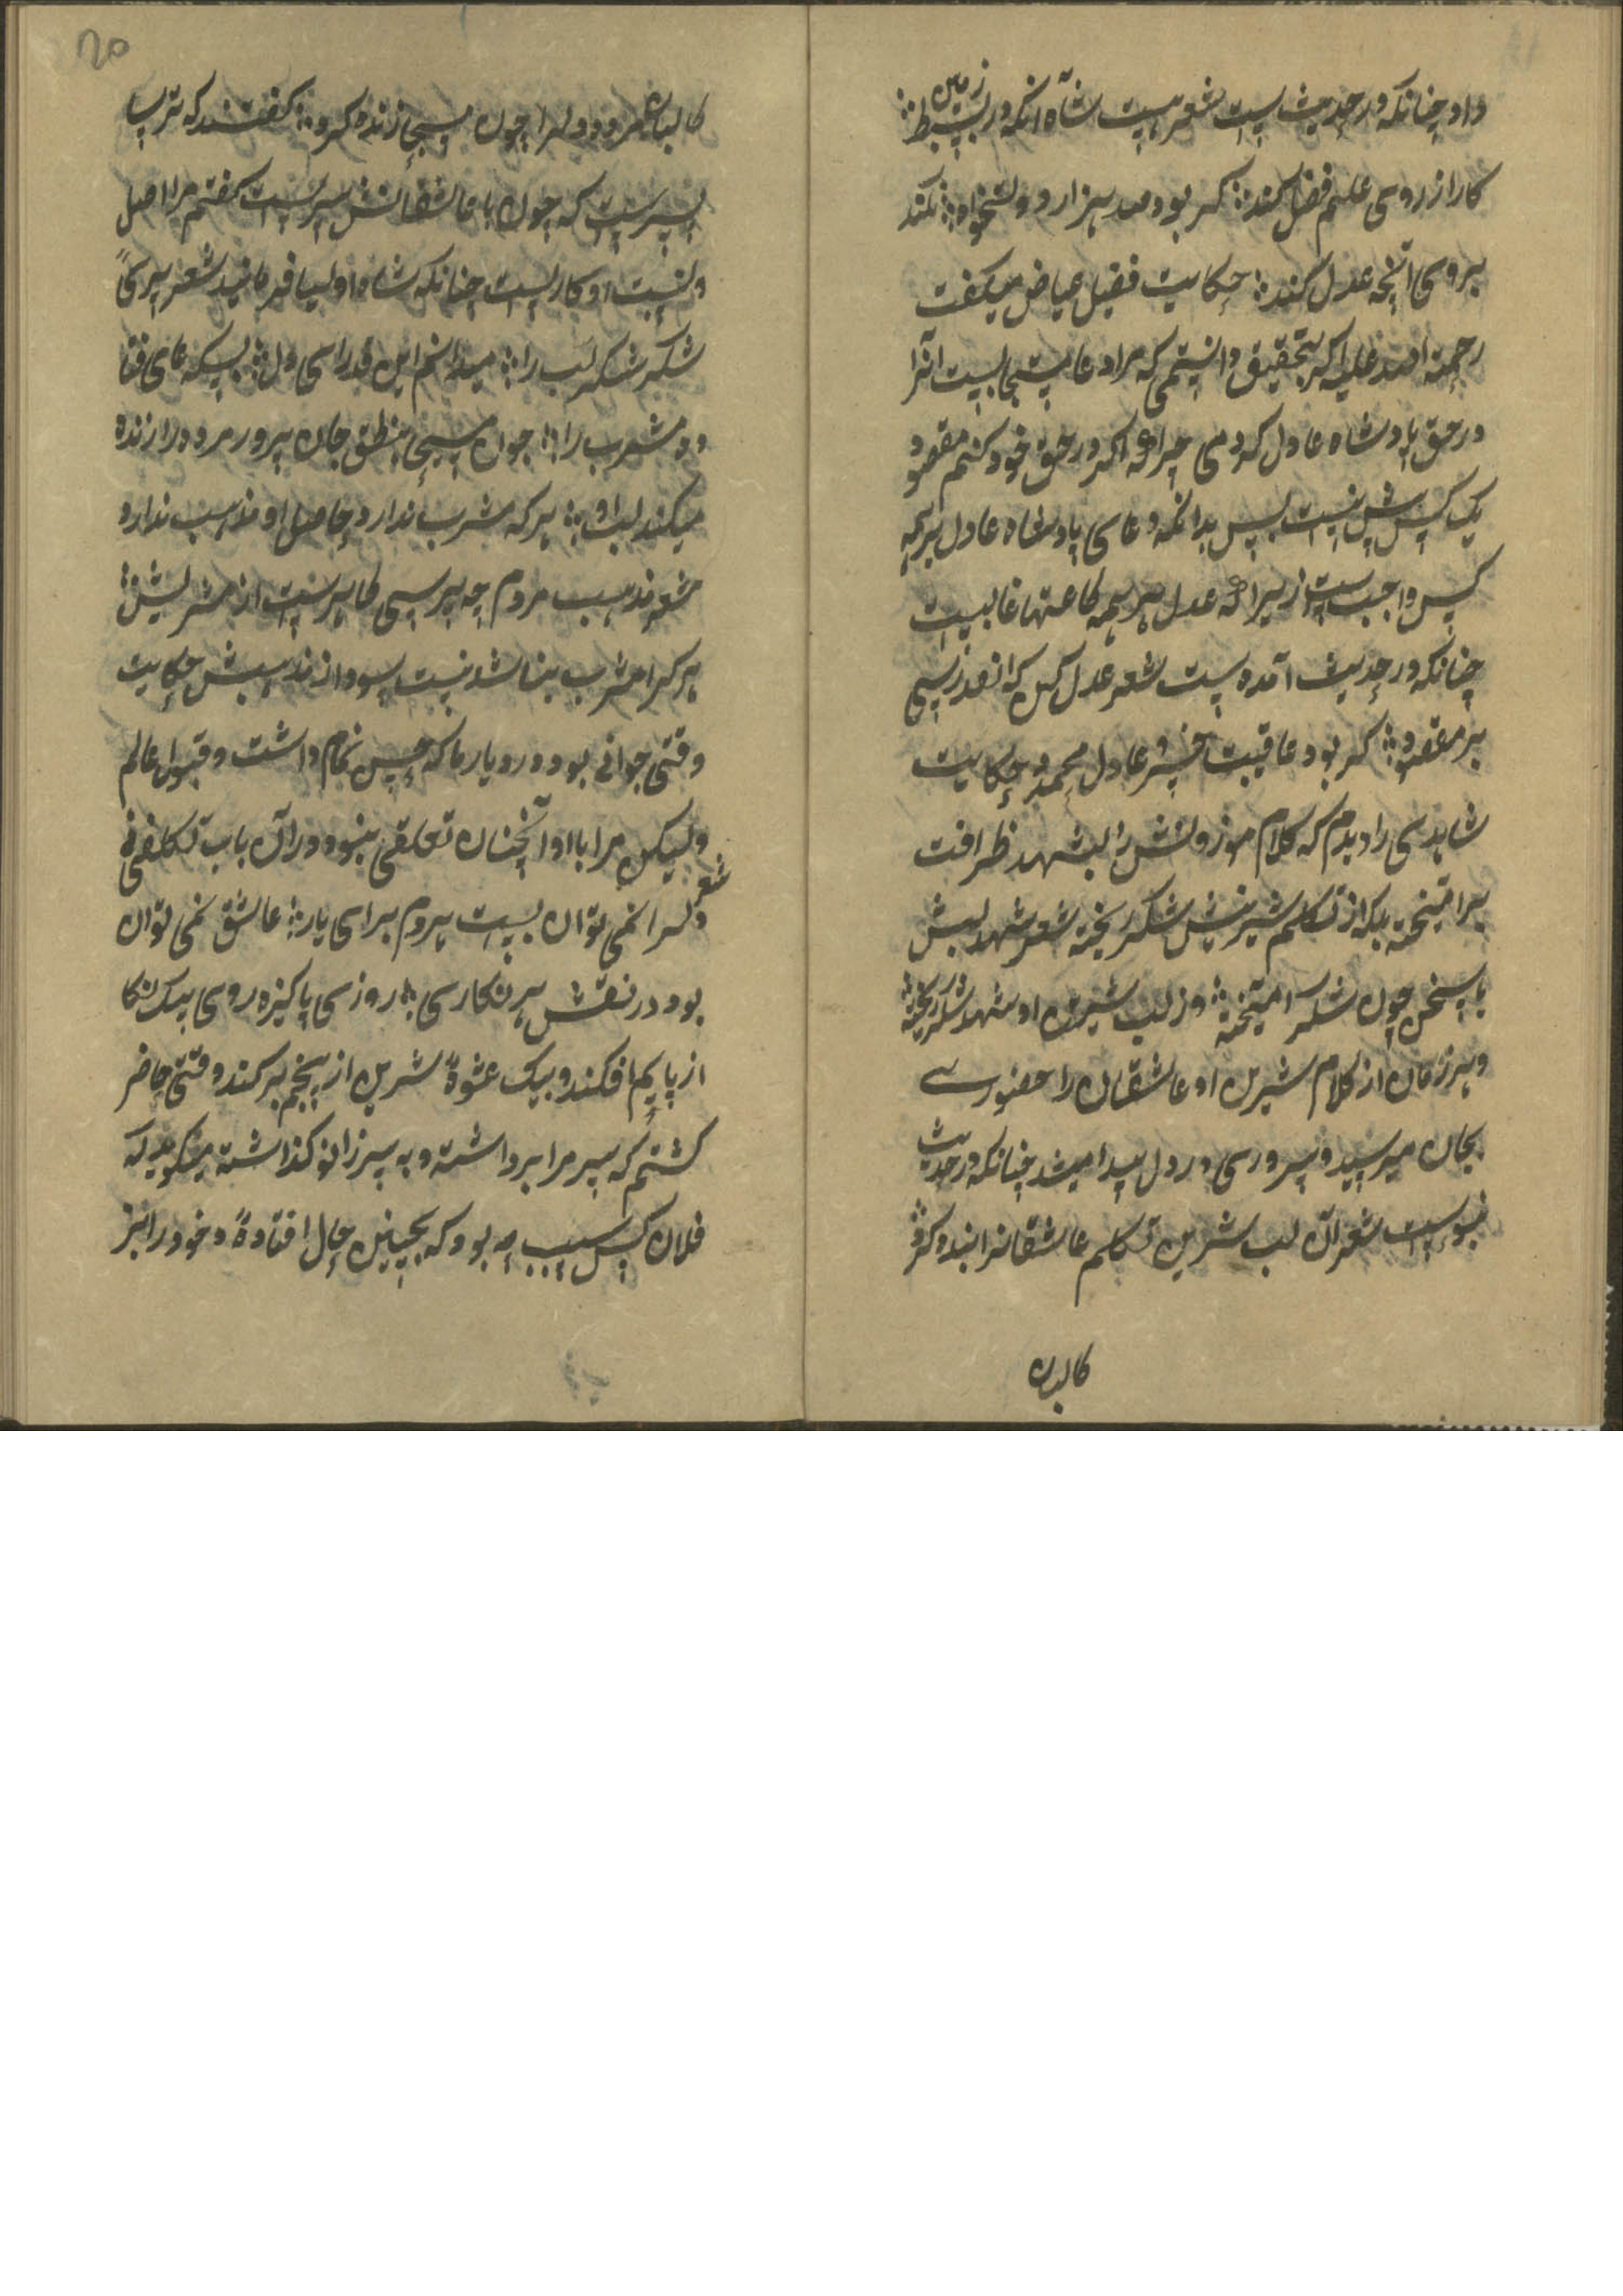 داد چنانکه در حدیث است شعر بیت شاه انکه در بسیط زمین ؞
کار از روی علم فضل کند ؞ کر بود صد هزار دولتخواه ؞ نکند
بروی انچه عدل کند ؞ حکایت فضیل عیاض میکفت
رحمة الله علیه اکر بتحقیق دانستمی که مرا دعا مستجابیست آنرا
در حق پادشاه عادل کردمی چرا که اکر در حق خود کنم مقصود
یک کس پیش نیست پس بدانکه دعای پادشاه عادل بر همه
کس واجبست زیرا که عدل بر همه طاعتها غالبست
چنانکه در حدیث آمده است شعر عدل کن که انقدر رسی
بر مقصود ؞ کر بود عاقبت عادل محمود حکایت
شاهدی را دیدم که کلام موزونش را بشهد ظرافت
برامیخته بلکه از تکلم شیرینش شکر ریخته شعر شهد لبش
با سخن چون شکر آمیخته ؞ وز لب شیرین او شهد و شکر ریخته
و هر زمان از کلام شیرین او عاشقان را حضوری
بجان میرسید و سروری در دل پیدا میشد چنانکه در حدیث
نبویست شعر آن لب شیرین تکلم عاشقانرا بنده کرد
کالبدن
کالبدن مرده دلرا چون مسیحا زنده کرد ؞ کفتند که ترسا
پسریست که چون با عاشقانش سریست کفتم مرا اصل
و نسبت او کاریست چنانکه شاه اولیا فرمایند شعر
شکر شکر لب را ؞ میدانم این قدر ای دل ؞
و مشرب را ؞ چون مسیحا بنطق جان پرور مرده را زنده
میکند لب او ؞ هر که مشرب ندارد حاصل او مذهب ندارد
شعر مذهب مردم چه پرسی ظاهرست از مشربش ؞
هر کرا مشرب بناشد نیست سود از مذهبش حکایت
وقتی جوانی بود در دیار ما که حسن تمام داشت و قبول عالم
ولیکن مرا با او آنچنان تعلقی نبود و در آن باب تکلفی نی شعر
دلرا نمی توان بست مردم برای یار ؞ عاشق نمی توان
بود در نقش هر نکاری ؞ روزی پاکیزه روی بیک نکا
از پایم افکند و بیک عشوهٔ شیرین از بیخم برکند وقتی حاضر
کشتم که سر مرا برداشته و به سر زانو کذاشته میکوید که
فلان کس سبب چه بود که بچنین حال افتادهٔ و خود را نیز